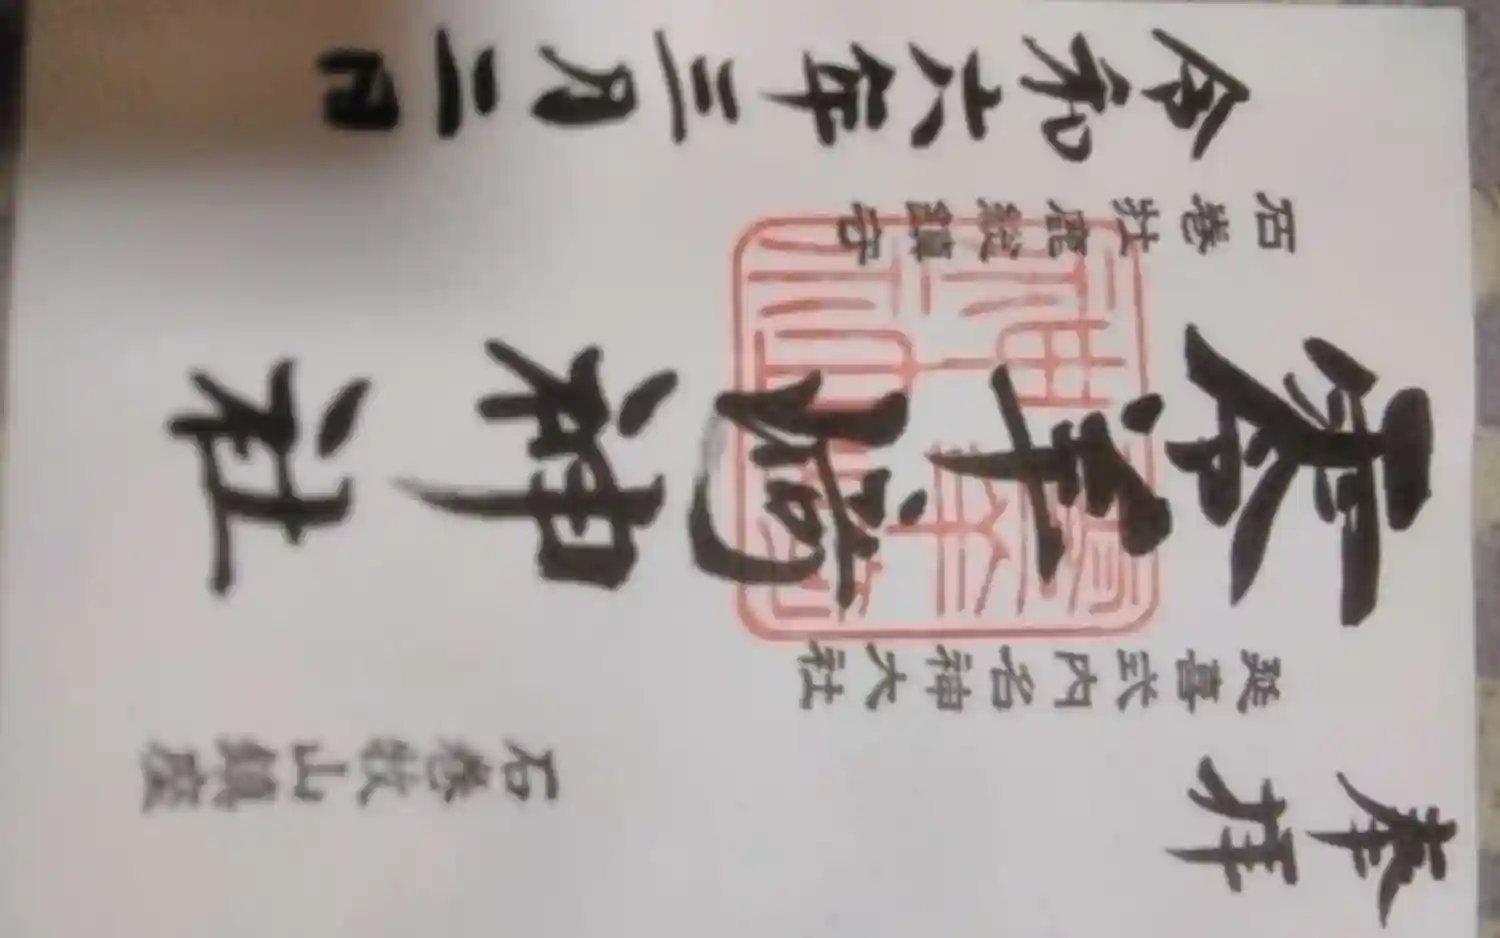 奉拝
石巻牧山鎮座
延喜式内名神大社
零羊崎神社
石巻牡鹿総鎮守
令和六年三月二日